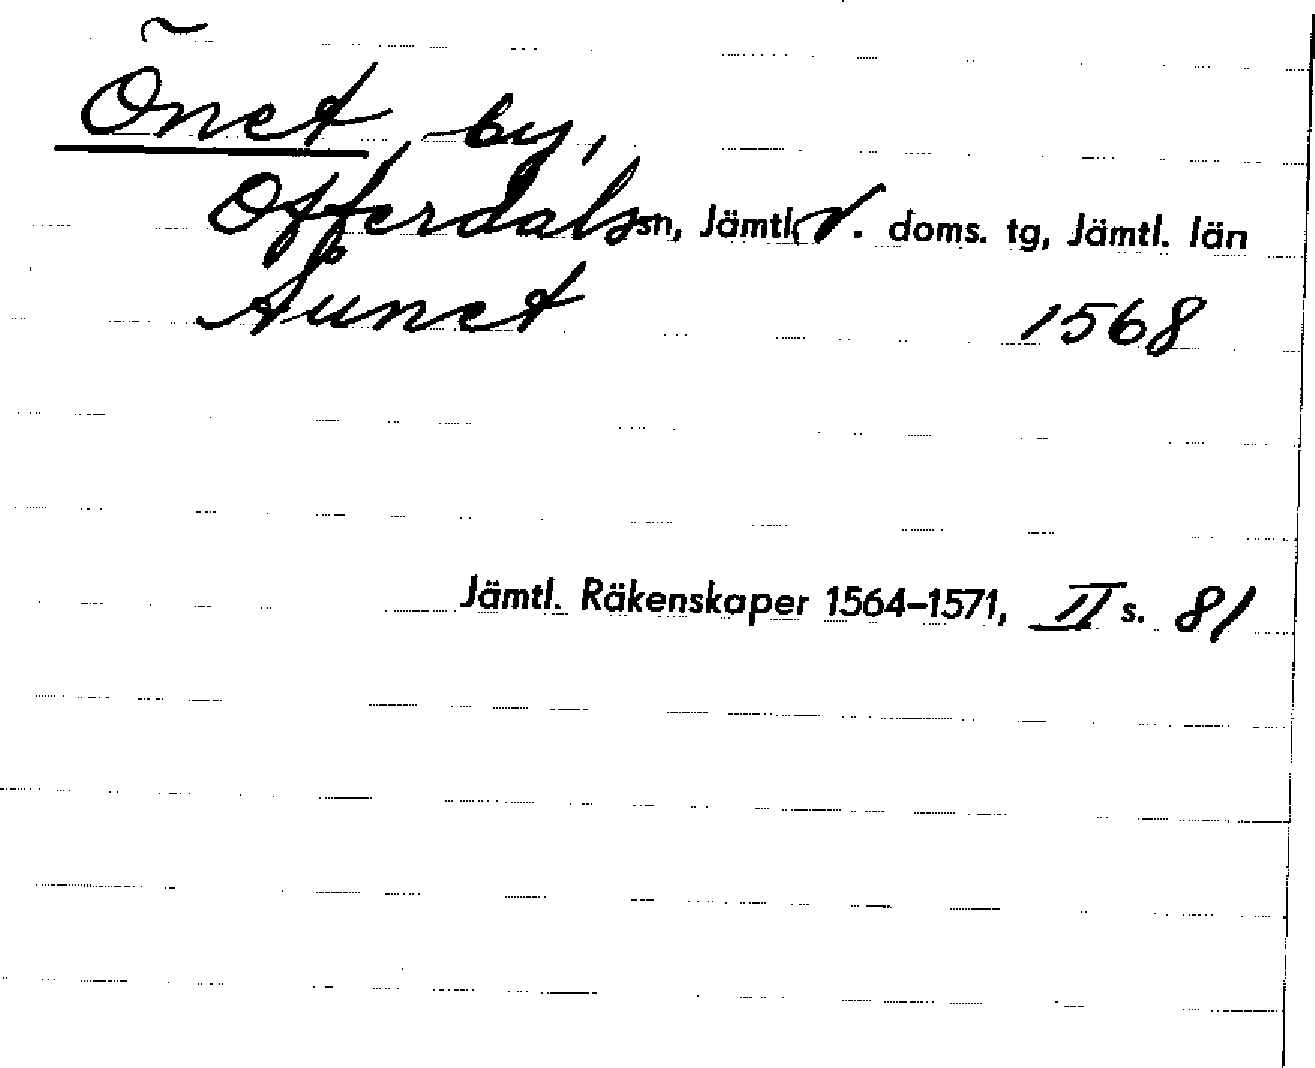 Önet by,
Offerdals sn, Jämtl. V. doms. tg, Jämtl. län
Aunet 1568
Jämtl. Räkenskaper 1564–1571, II s. 81